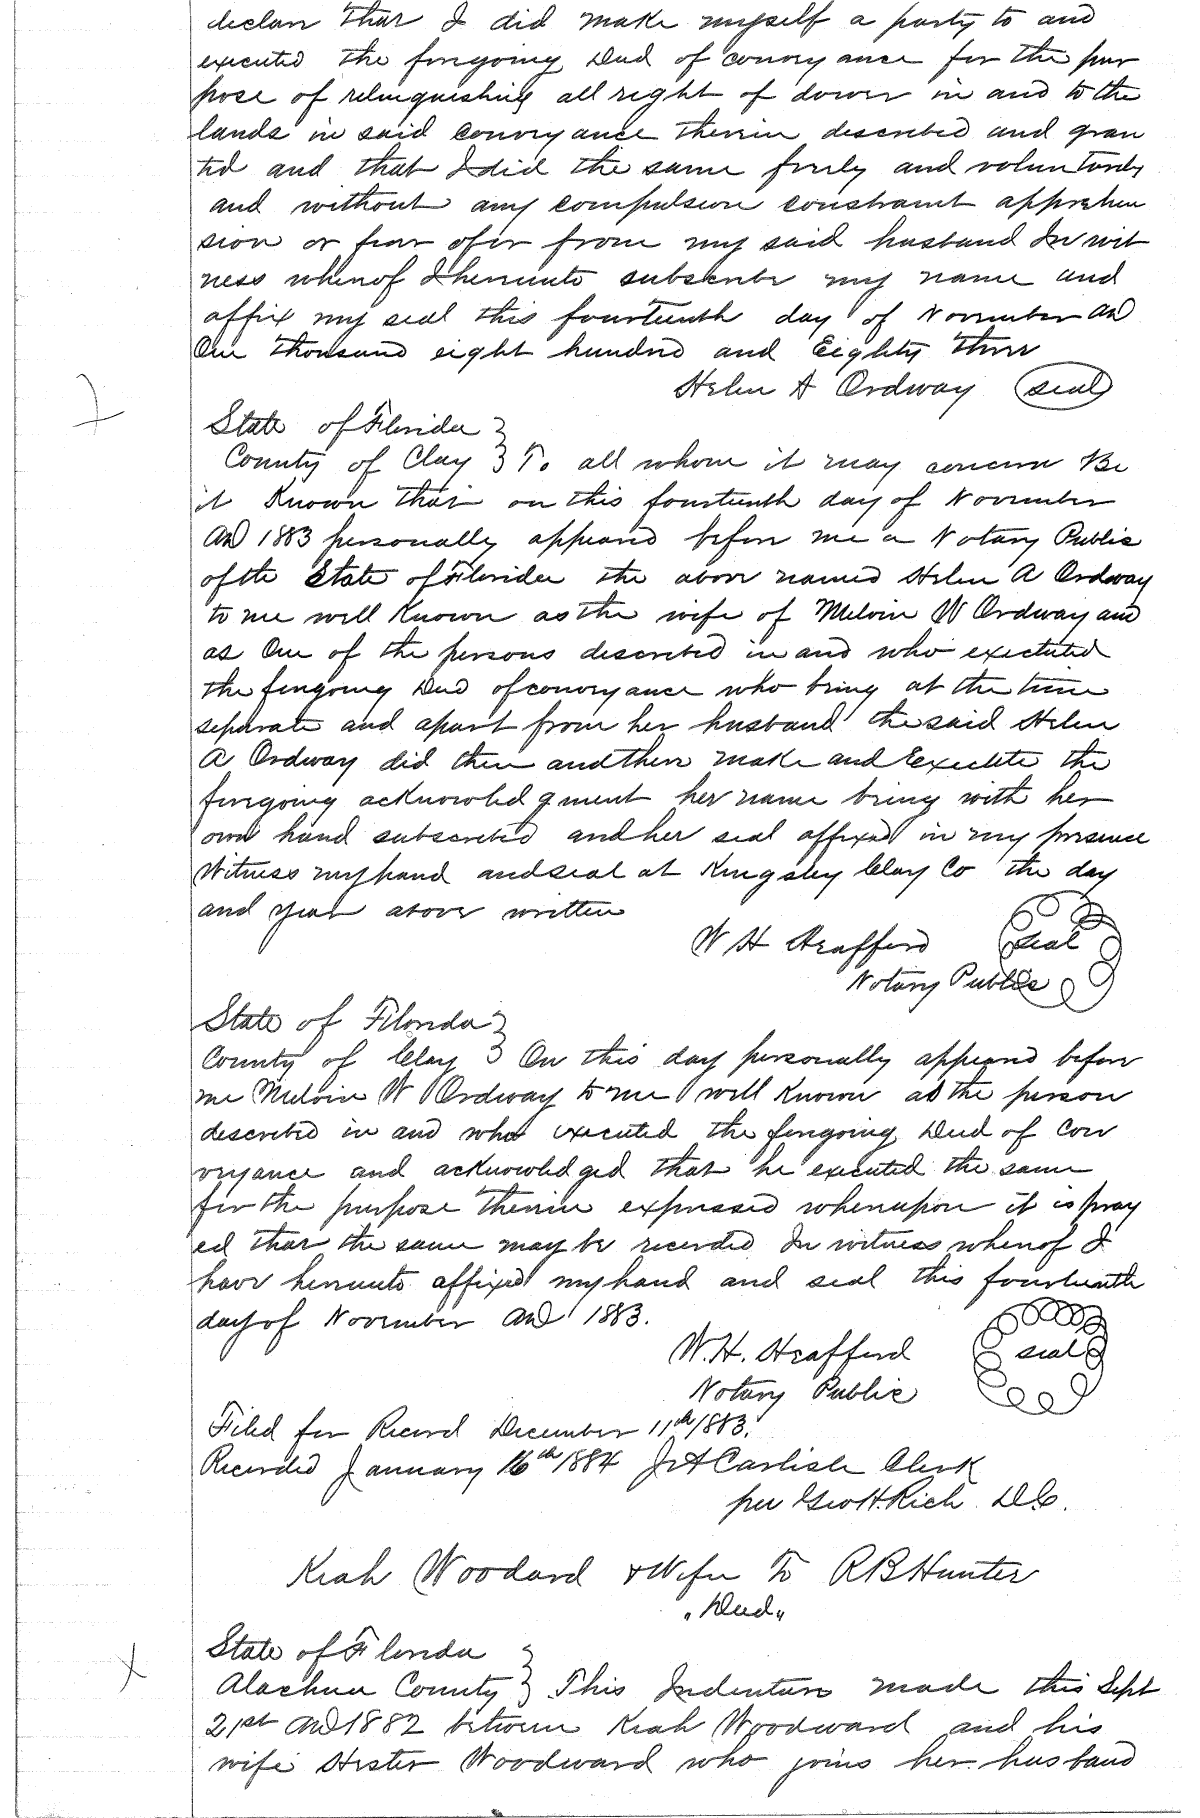 declare that I did make myself a party to and
executed the foregoing Deed of conveyance for the pur
pose of relinquishing all right of dower in and to the
lands in said conveyance therein described and gran
ted and that I did the same freely and voluntarily
and without any compulsion constraint apprehen
sion or fear of or from my said husband In wit
ness whereof I hereunto subscribe my name and
affix my seal this fourteenth day of November AD
One thousand eight hundred and Eighty Three
Helen A Ordway seal
State of Florida }
County of Clay } To all whom it may concern Be
it Known that on this fourteenth day of November
AD 1883 personally appeared before me a Notary Public
of the State of Florida the above named Helen A Ordway
to me well Known as the wife of Melvin W Ordway and
as One of the persons described in and who exectuted
the foregoing Deed of conveyance who being at the time
separate and apart from her husband the said Helen
A Ordway did then and there make and Exectute the
foregoing acknowledgment her name being with her
own hand subscribed and her seal affixed in my presence
Witness my hand and seal at Kingsley Clay Co the day
and year above written
W H Strafford seal
Notary Public
State of Florida }
County of Clay } On this day personally appeared before
me Melvin W Ordway to me well Known as the person
described in and who executed the foregoing Deed of Con
veyance and acknowledged that he executed the same
for the purpose therein expressed whereupon it is pray
ed that the same may be recorded In witness whereof I
have hereunto affixed my hand and seal this fourteenth
day of November AD 1883.
W. H. Strafford seal
Notary Public
Filed for Record December 11th 1883.
Recorded January 16th 1884 J A Carlisle Clerk
per Geo H. Rich D.C.
Kiah Woodard & Wife To R B Hunter
"Deed"
State of Florida }
Alachua County } This Indenture made this Sept
21st AD 1882 between Kiah Woodward and his
wife Hester Woodward who joins her husband